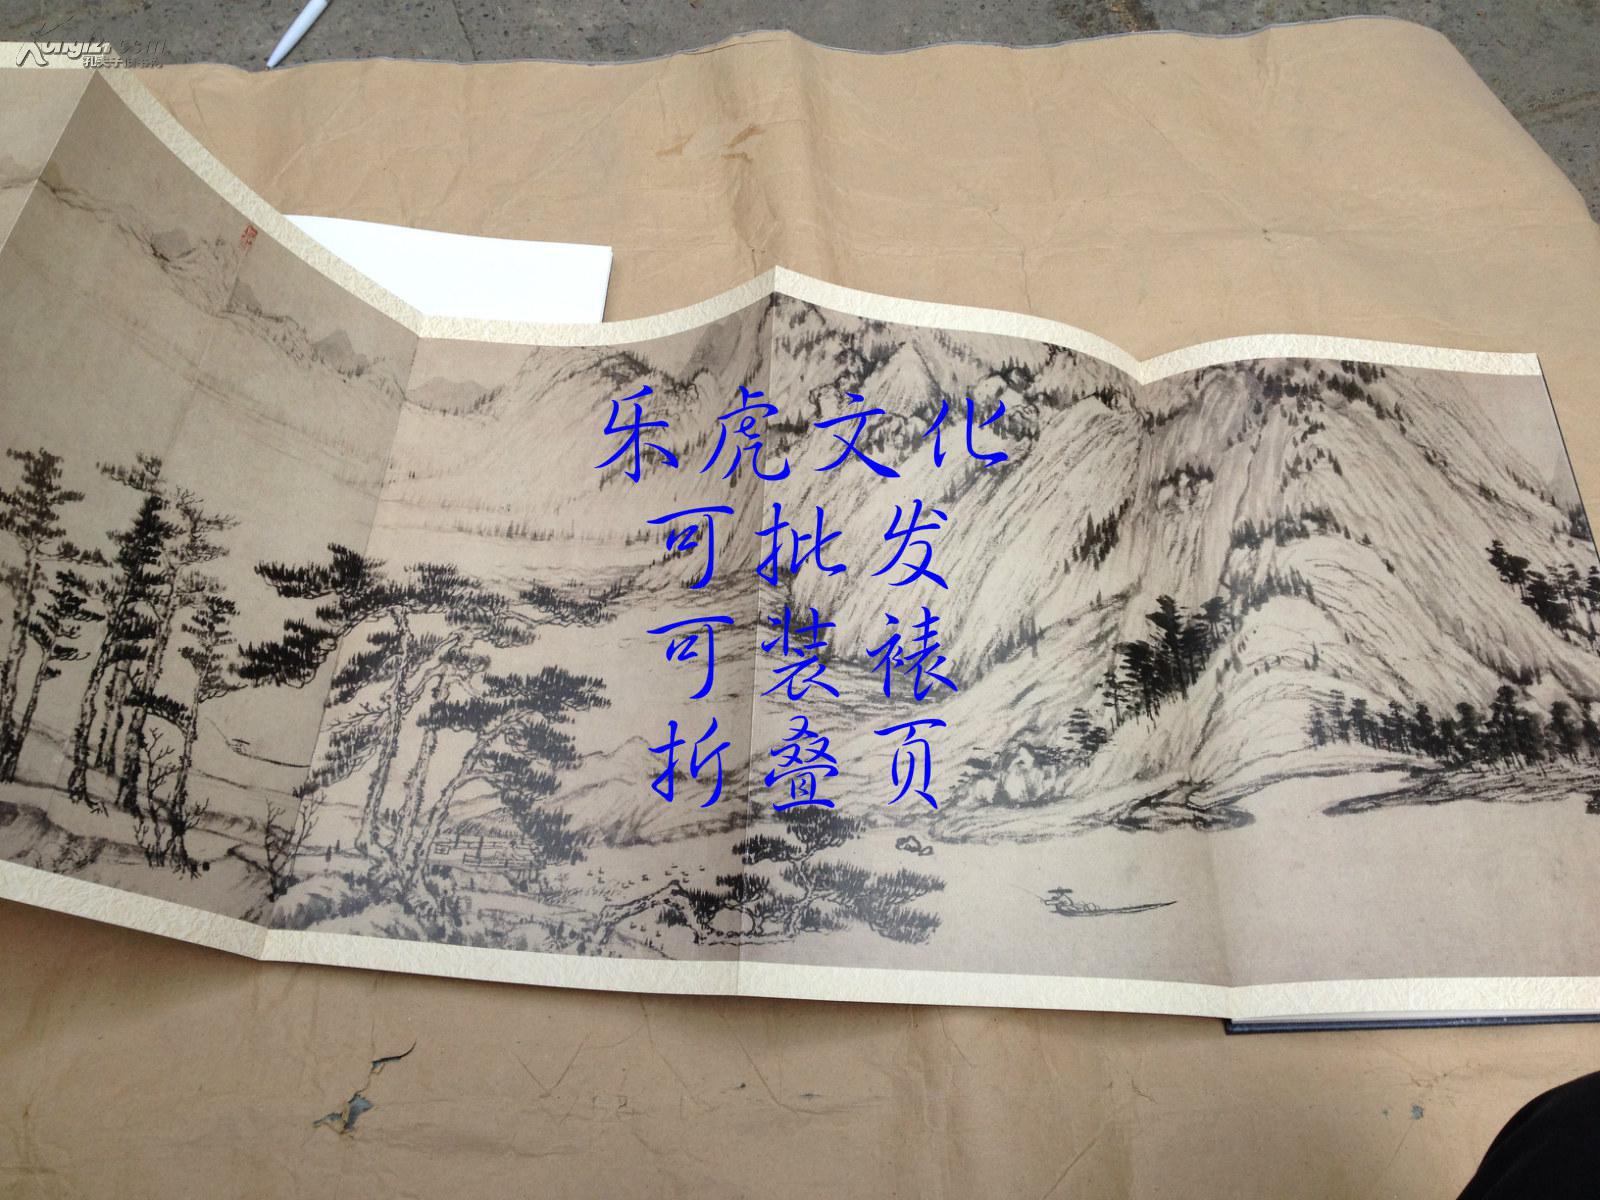 Kongfz.com
孔夫子旧书网
乐虎文化
可批发
可装裱
折叠页